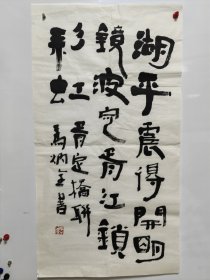 湖平震得開明
鏡波定胥江鎖
彩虹
胥定橋聯
馬炳全書